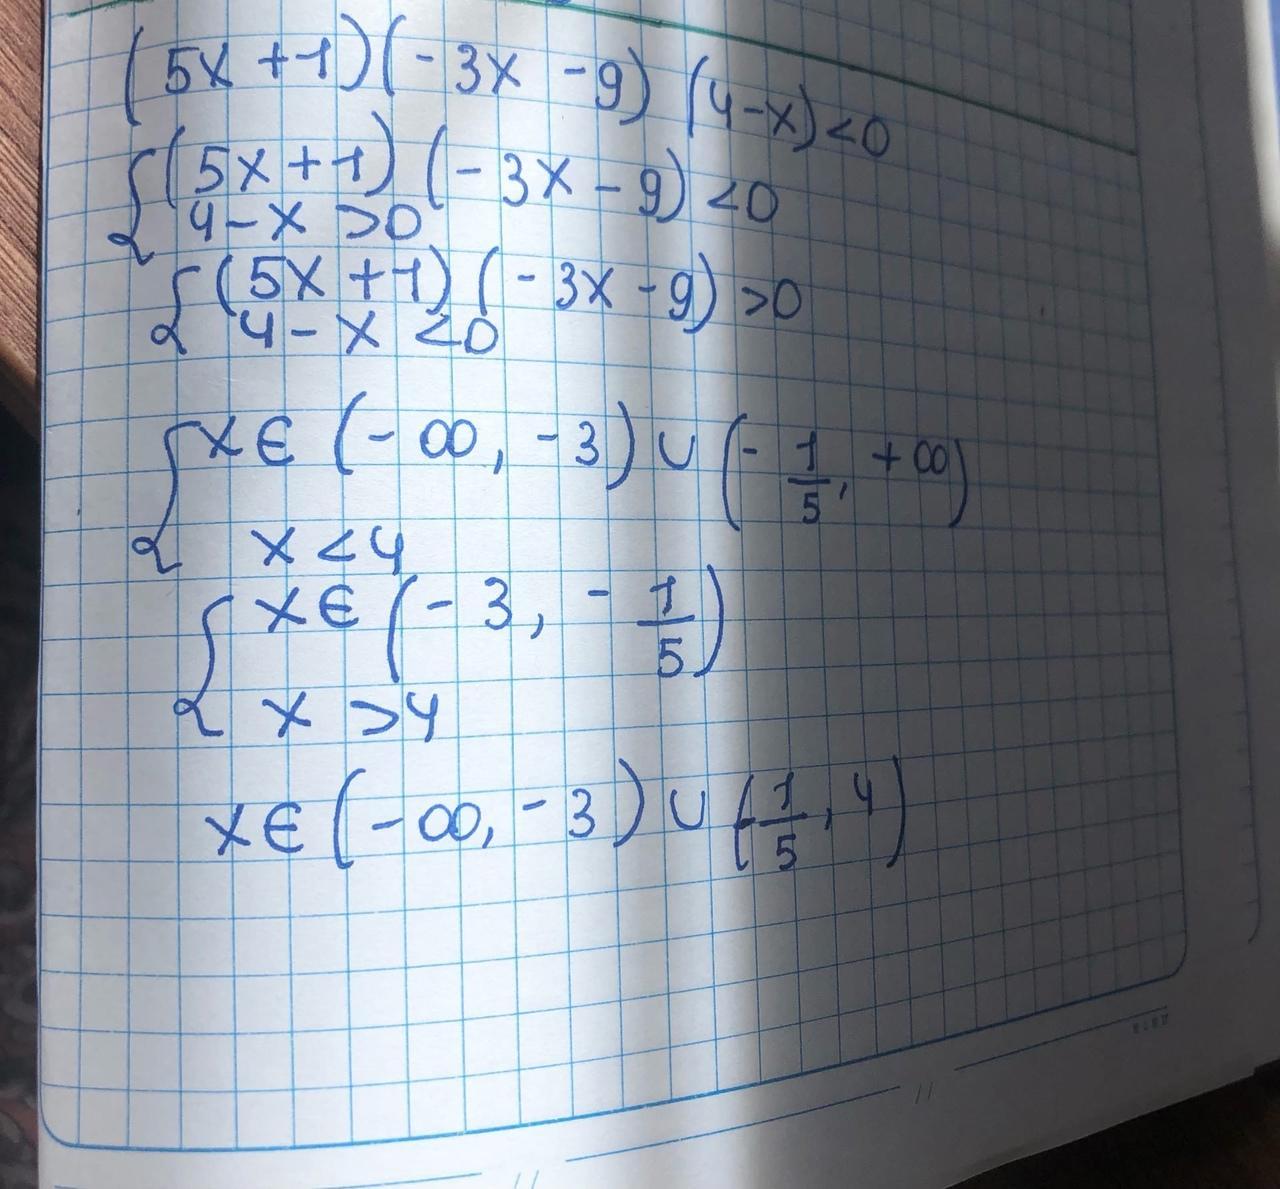 (5x+1)(-3x-9)(4-x)<0
{(5x+1)(-3x-9)<0
4-x>0
{(5x+1)(-3x-9)>0
4-x<0
{x∈(-∞,-3)∪(-1/5,+∞)
x<4
{x∈(-3,-1/5)
x>4
x∈(-∞,-3)∪(-1/5,4)